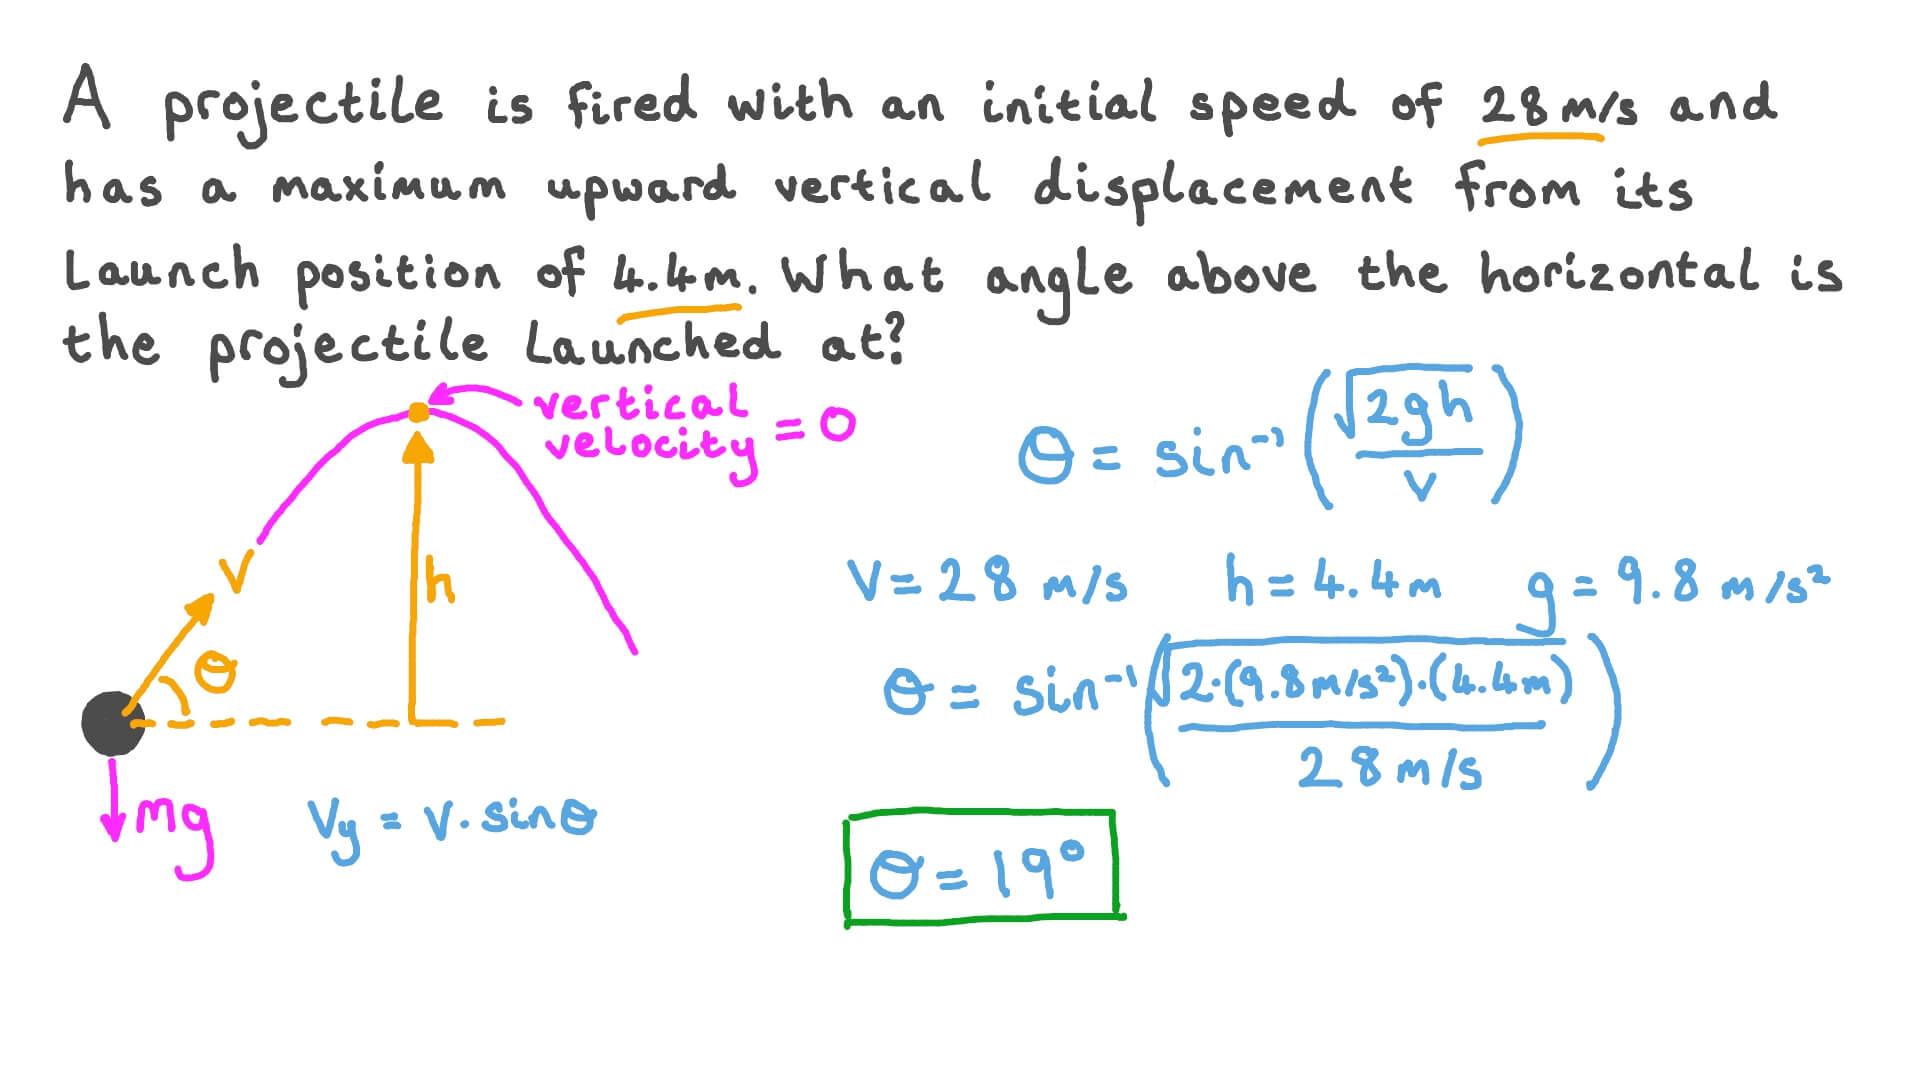 A projectile is fired with an initial speed of 28 m/s and
has a maximum upward vertical displacement from its
Launch position of 4.4m. What angle above the horizontal is
the projectile Launched at?
vertical
velocity = 0
V
h
θ
mg
Vy = V. sinθ
θ = sin⁻¹(√2gh / V)
V = 28 m/s h = 4.4m g = 9.8 m/s²
θ = sin⁻¹(√2·(9.8m/s²)·(4.4m) / 28m/s)
θ = 19°